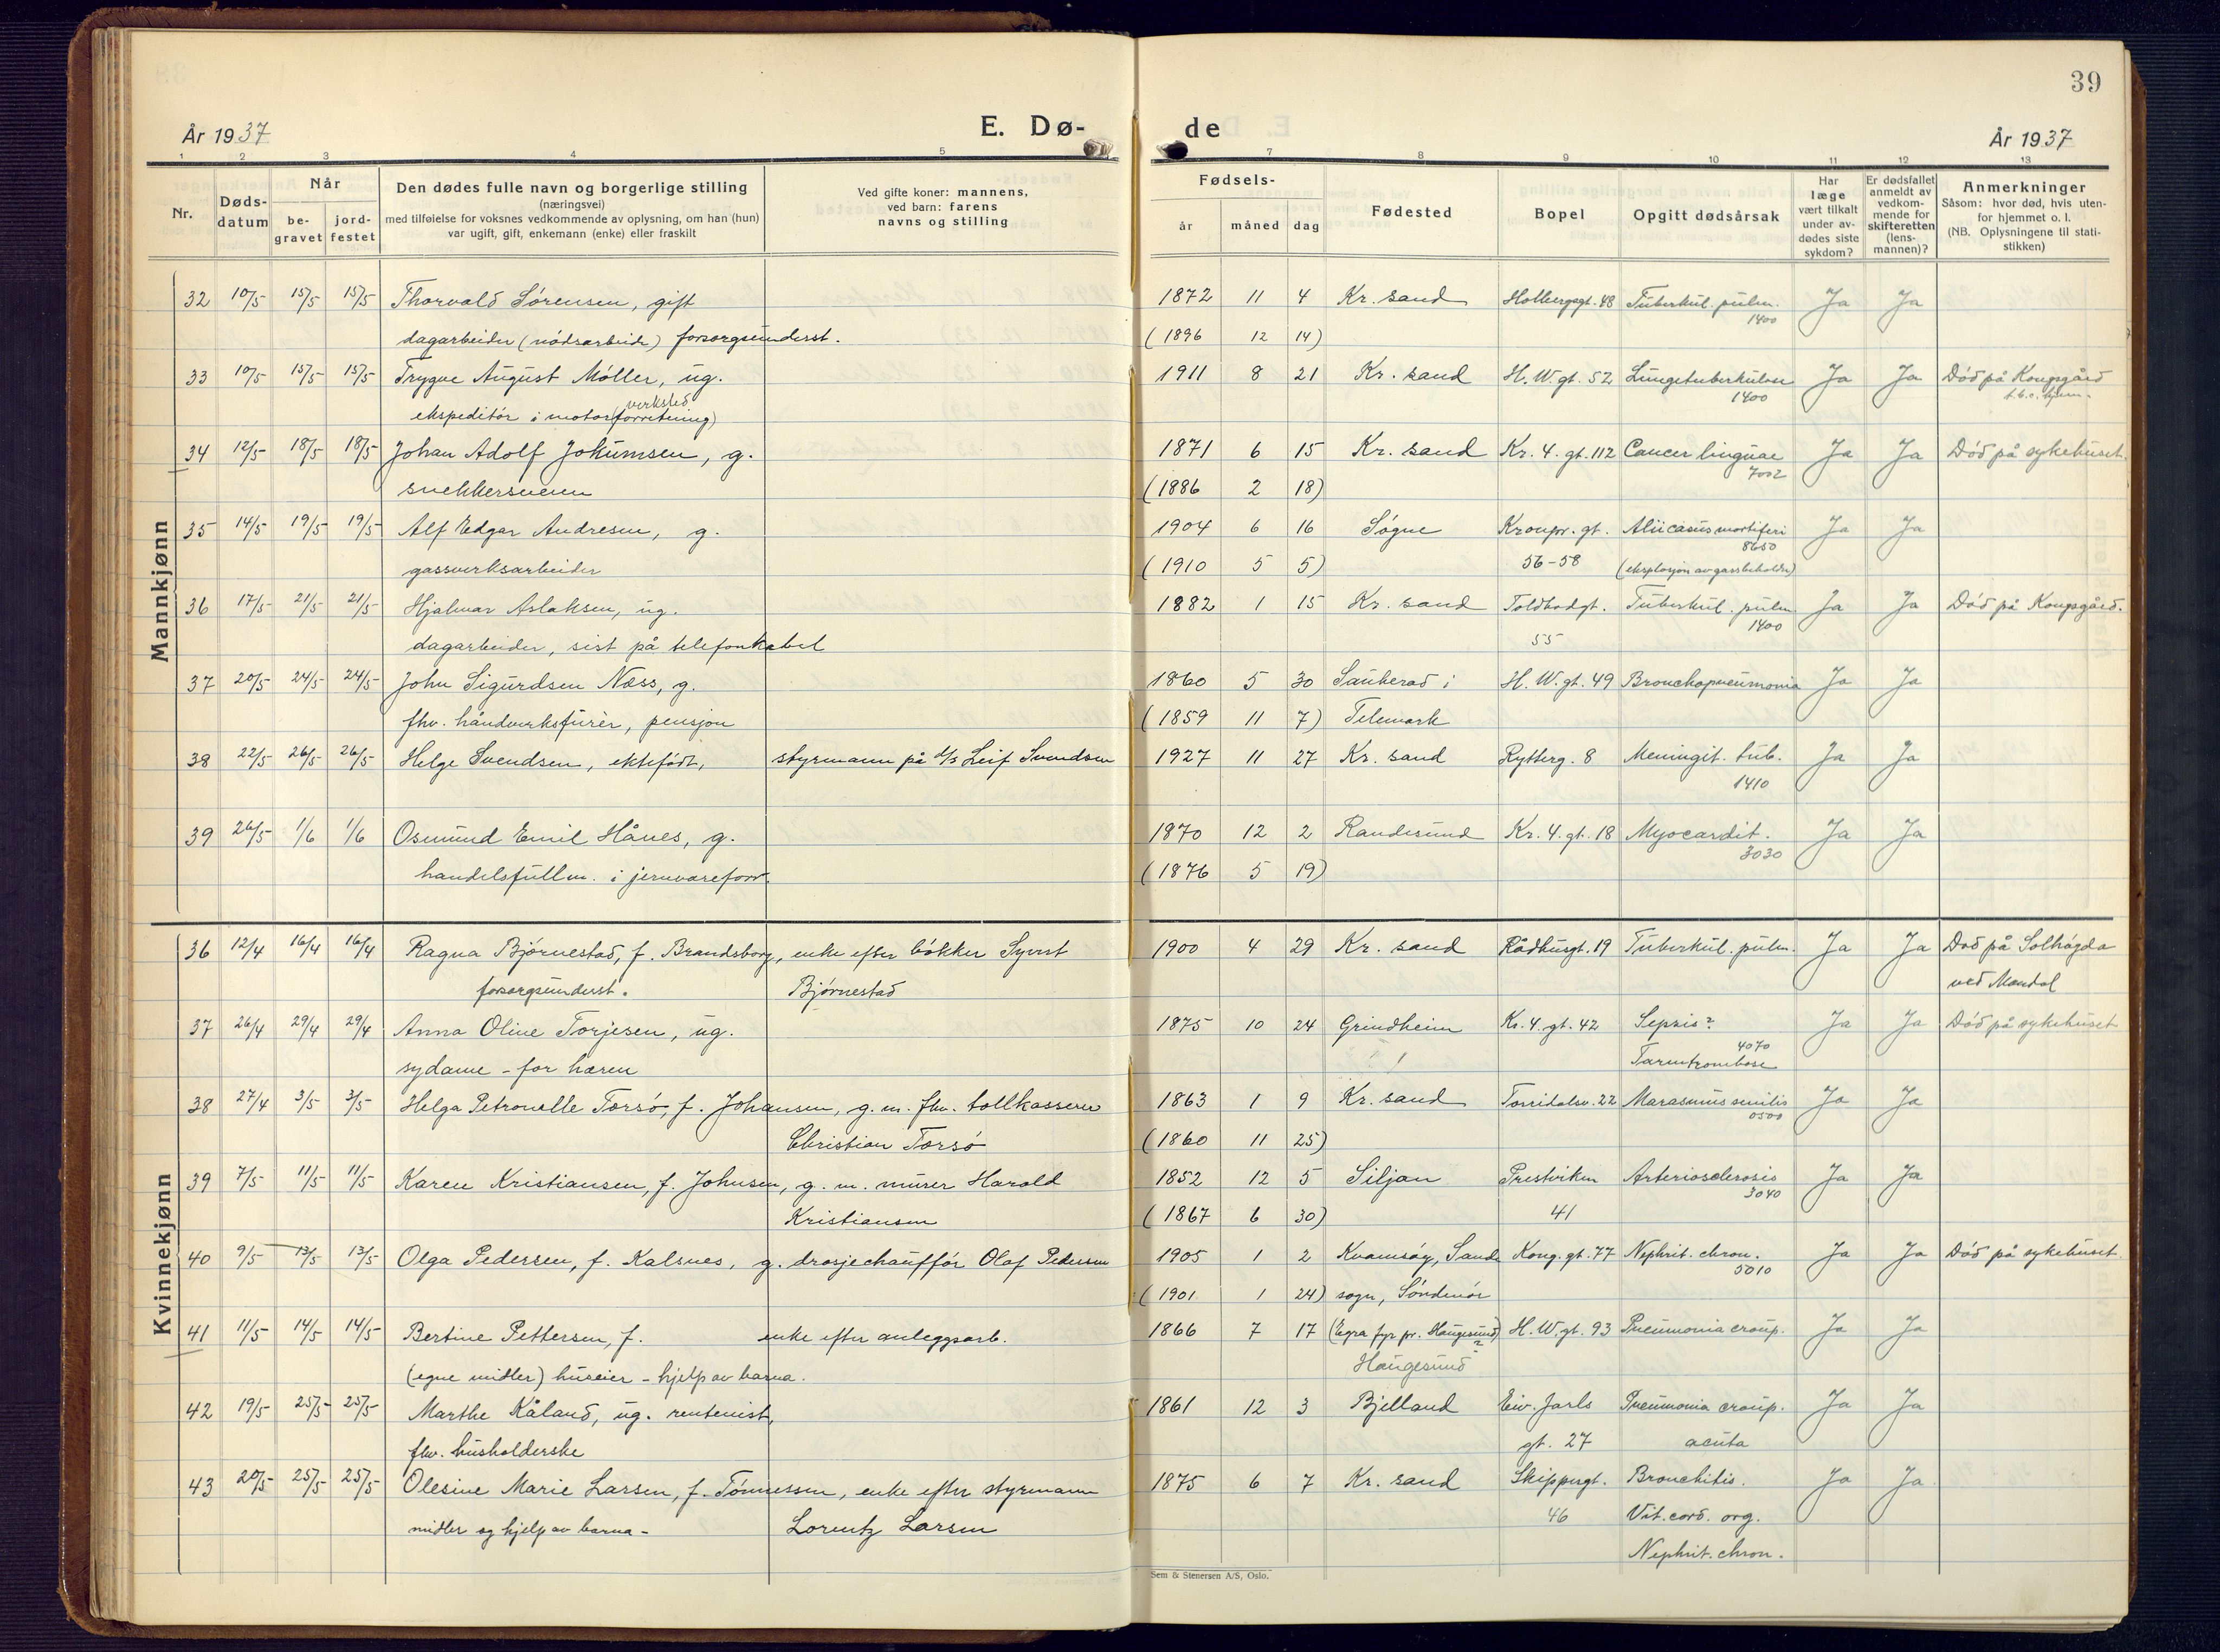 39
År 1937 E. Dø- de År 1937
1 2 3 4 5 7 8 9 10 11 12 13
Nr. Døds-datum Når be-gravet jord-festet Den dødes fulle navn og borgerlige stilling (næringsvei) med tilføielse for voksnes vedkommende av oplysning, om han (hun) var ugift, gift, enkemann (enke) eller fraskilt Ved gifte koner: mannens, ved barn: farens navns og stilling Fødsels- år måned dag Fødested Bopel Opgitt dødsårsak Har læge vært tilkalt under av-dødes siste sykdom? Er dødsfallet anmeldt av vedkom-mende for skifteretten (lens-mannen)? Anmerkninger Såsom: hvor død, hvis uten-for hjemmet o. l. (NB. Oplysningene til stati-stikken)
Mannkjønn
32 10/5 15/5 15/5 Thorvald Sørensen, gift 1872 11 4 Kr. sand Holbergsgt. 48 Tuberkul. pulm. 1400 Ja Ja
dagarbeider (nødsarbeide) forsorgsunderst. (1896 12 14)
33 10/5 15/5 15/5 Trygve August Møller, ug. 1911 8 21 Kr. sand H. W. gt. 52 Lungetuberkulose 1400 Ja Ja Død på Kongsgård t.b.c. hjem.
ekspeditør i motor(forretning) verksted
34 12/5 18/5 18/5 Johan Adolf Jokumsen, g. 1871 6 15 Kr. sand Kr. 4. gt. 112 Cancer linguae 7002 Ja Ja Død på sykehuset.
snekkersvenn (1886 2 18)
35 14/5 19/5 19/5 Alf Edgar Andresen, g. 1904 6 16 Søgne Kronpr. gt. Alii casus mortiferi 8650 Ja Ja
gassverksarbeider (1910 5 5) 56-58 (eksplosjon av gassbeholder)
36 17/5 21/5 21/5 Hjalmar Aslaksen, ug. 1882 1 15 Kr. sand Toldbodgt. Tuberkul. pulm 1400 Ja Ja Død på Kongsgård.
dagarbeider, sist på telefonkabel 55
37 20/5 24/5 24/5 John Sigurdsen Næss, g. 1860 5 30 Sauherad i H. W. gt. 49 Bronchopneumonia Ja Ja
fhv. håndverksfurèr, pensjon (1859 11 7) Telemark
38 22/5 26/5 26/5 Helge Svendsen, ektefødt, styrmann på d/s Leif Svendsen 1927 11 27 Kr. sand Rytterg. 8 Meningit. tub. 1410 Ja Ja
39 26/5 1/6 1/6 Osmund Emil Hånes, g. 1870 12 2 Randesund Kr. 4. gt. 18 Myocardit. 3030 Ja Ja
handelsfullm. i jernvareforr. (1876 5 19)
Kvinnekjønn
36 12/4 16/4 16/4 Ragna Bjørnestad, f. Brandsborg, enke efter bøkker Syvert 1900 4 29 Kr. sand Rådhusgt. 19 Tuberkul. pulm. Ja Ja Død på Solhøgda
forsorgsunderst. Bjørnestad ved Mandal
37 26/4 29/4 29/4 Anna Oline Torjesen, ug. 1875 10 24 Grindheim Kr. 4. gt. 42 Sepsis? 4070 Ja Ja Død på sykehuset
sydame - for hæren Tarmtrombose
38 27/4 3/5 3/5 Helga Petronelle Torsø, f. Johansen, g. m. fhv. tollkasserer 1863 1 9 Kr. sand Torridalsv. 22 Marasmus senilis 0500 Ja Ja
Christian Torsø (1860 11 25)
39 7/5 11/5 11/5 Karen Kristiansen, f. Johnsen, g. m. murer Harald 1852 12 5 Siljan Prestviken Arteriosclerosis 3040 Ja Ja
Kristiansen (1867 6 30) 41
40 9/5 13/5 13/5 Olga Pedersen, f. Kalsnes, g. drosjechauffør Olaf Pedersen 1905 1 2 Kvamsøy, Sande Kong. gt. 77 Nephrit. chron. 5010 Ja Ja Død på sykehuset.
(1901 1 24) sogn, Søndmør
41 11/5 14/5 14/5 Bertine Pettersen, f. enke efter anleggsarb. 1866 7 17 fyr pr. Haugesund) ? H. W. gt. 93 Pneumonia croup. Ja Ja
(egne midler) huseier - hjelp av barna. Haugesund
42 19/5 25/5 25/5 Marthe Kåland, ug. rentenist, 1861 12 3 Bjelland Eiv. Jarls Pneumonia croup. Ja Ja
fhv. husholderske gt. 27 acuta
43 20/5 25/5 25/5 Olesine Marie Larsen, f. Tønnessen, enke efter styrmann 1875 6 7 Kr. sand Skippergt. Bronchitis. Ja Ja
midler og hjelp av barna - Lorentz Larsen 46 Vit. cord. org.
Nephrit. chron.
Sem & Stenersen A/S, Oslo.